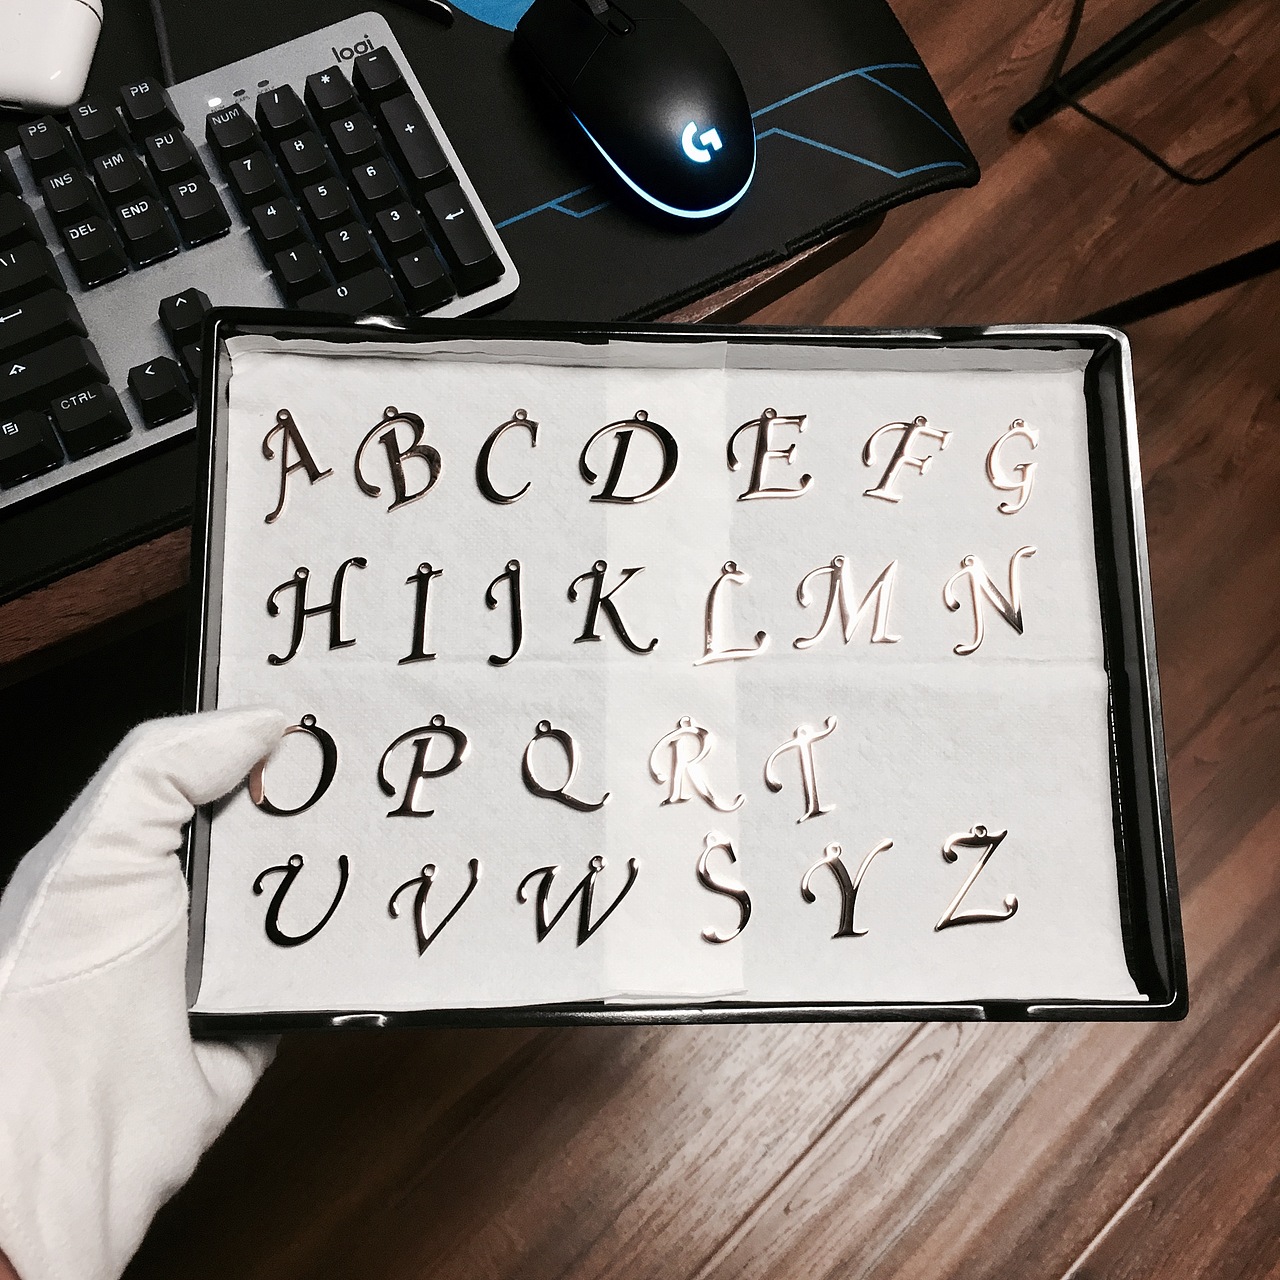 logi
PS SL PB
NUM / * -
INS HM PU
7 8 9 +
DEL END PD
4 5 6
1 2 3
\ |
0 .
^
<
CTRL
G
A B C D E F G
H I J K L M N
O P Q R T
U V W S Y Z